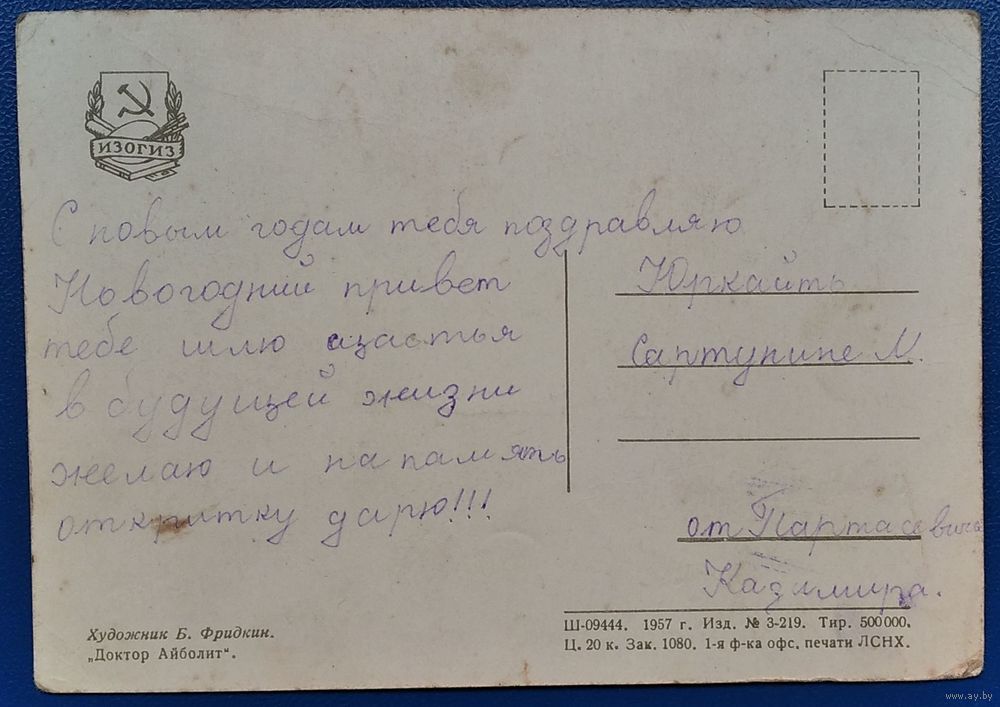 ИЗОГИЗ
С новым годам тебя поздравляю
Новогодний привет
тебе шлю щастья
в будущей жизни
желаю и на память
открытку дарю!!!
Юркайть
Сартунине М.
от Партасевича
Казимира.
Художник Б. Фридкин.
„Доктор Айболит“.
Ш-09444. 1957 г. Изд. № 3-219. Тир. 500 000.
Ц. 20 к. Зак. 1080. 1-я ф-ка офс. печати ЛСНХ.
www.ay.by